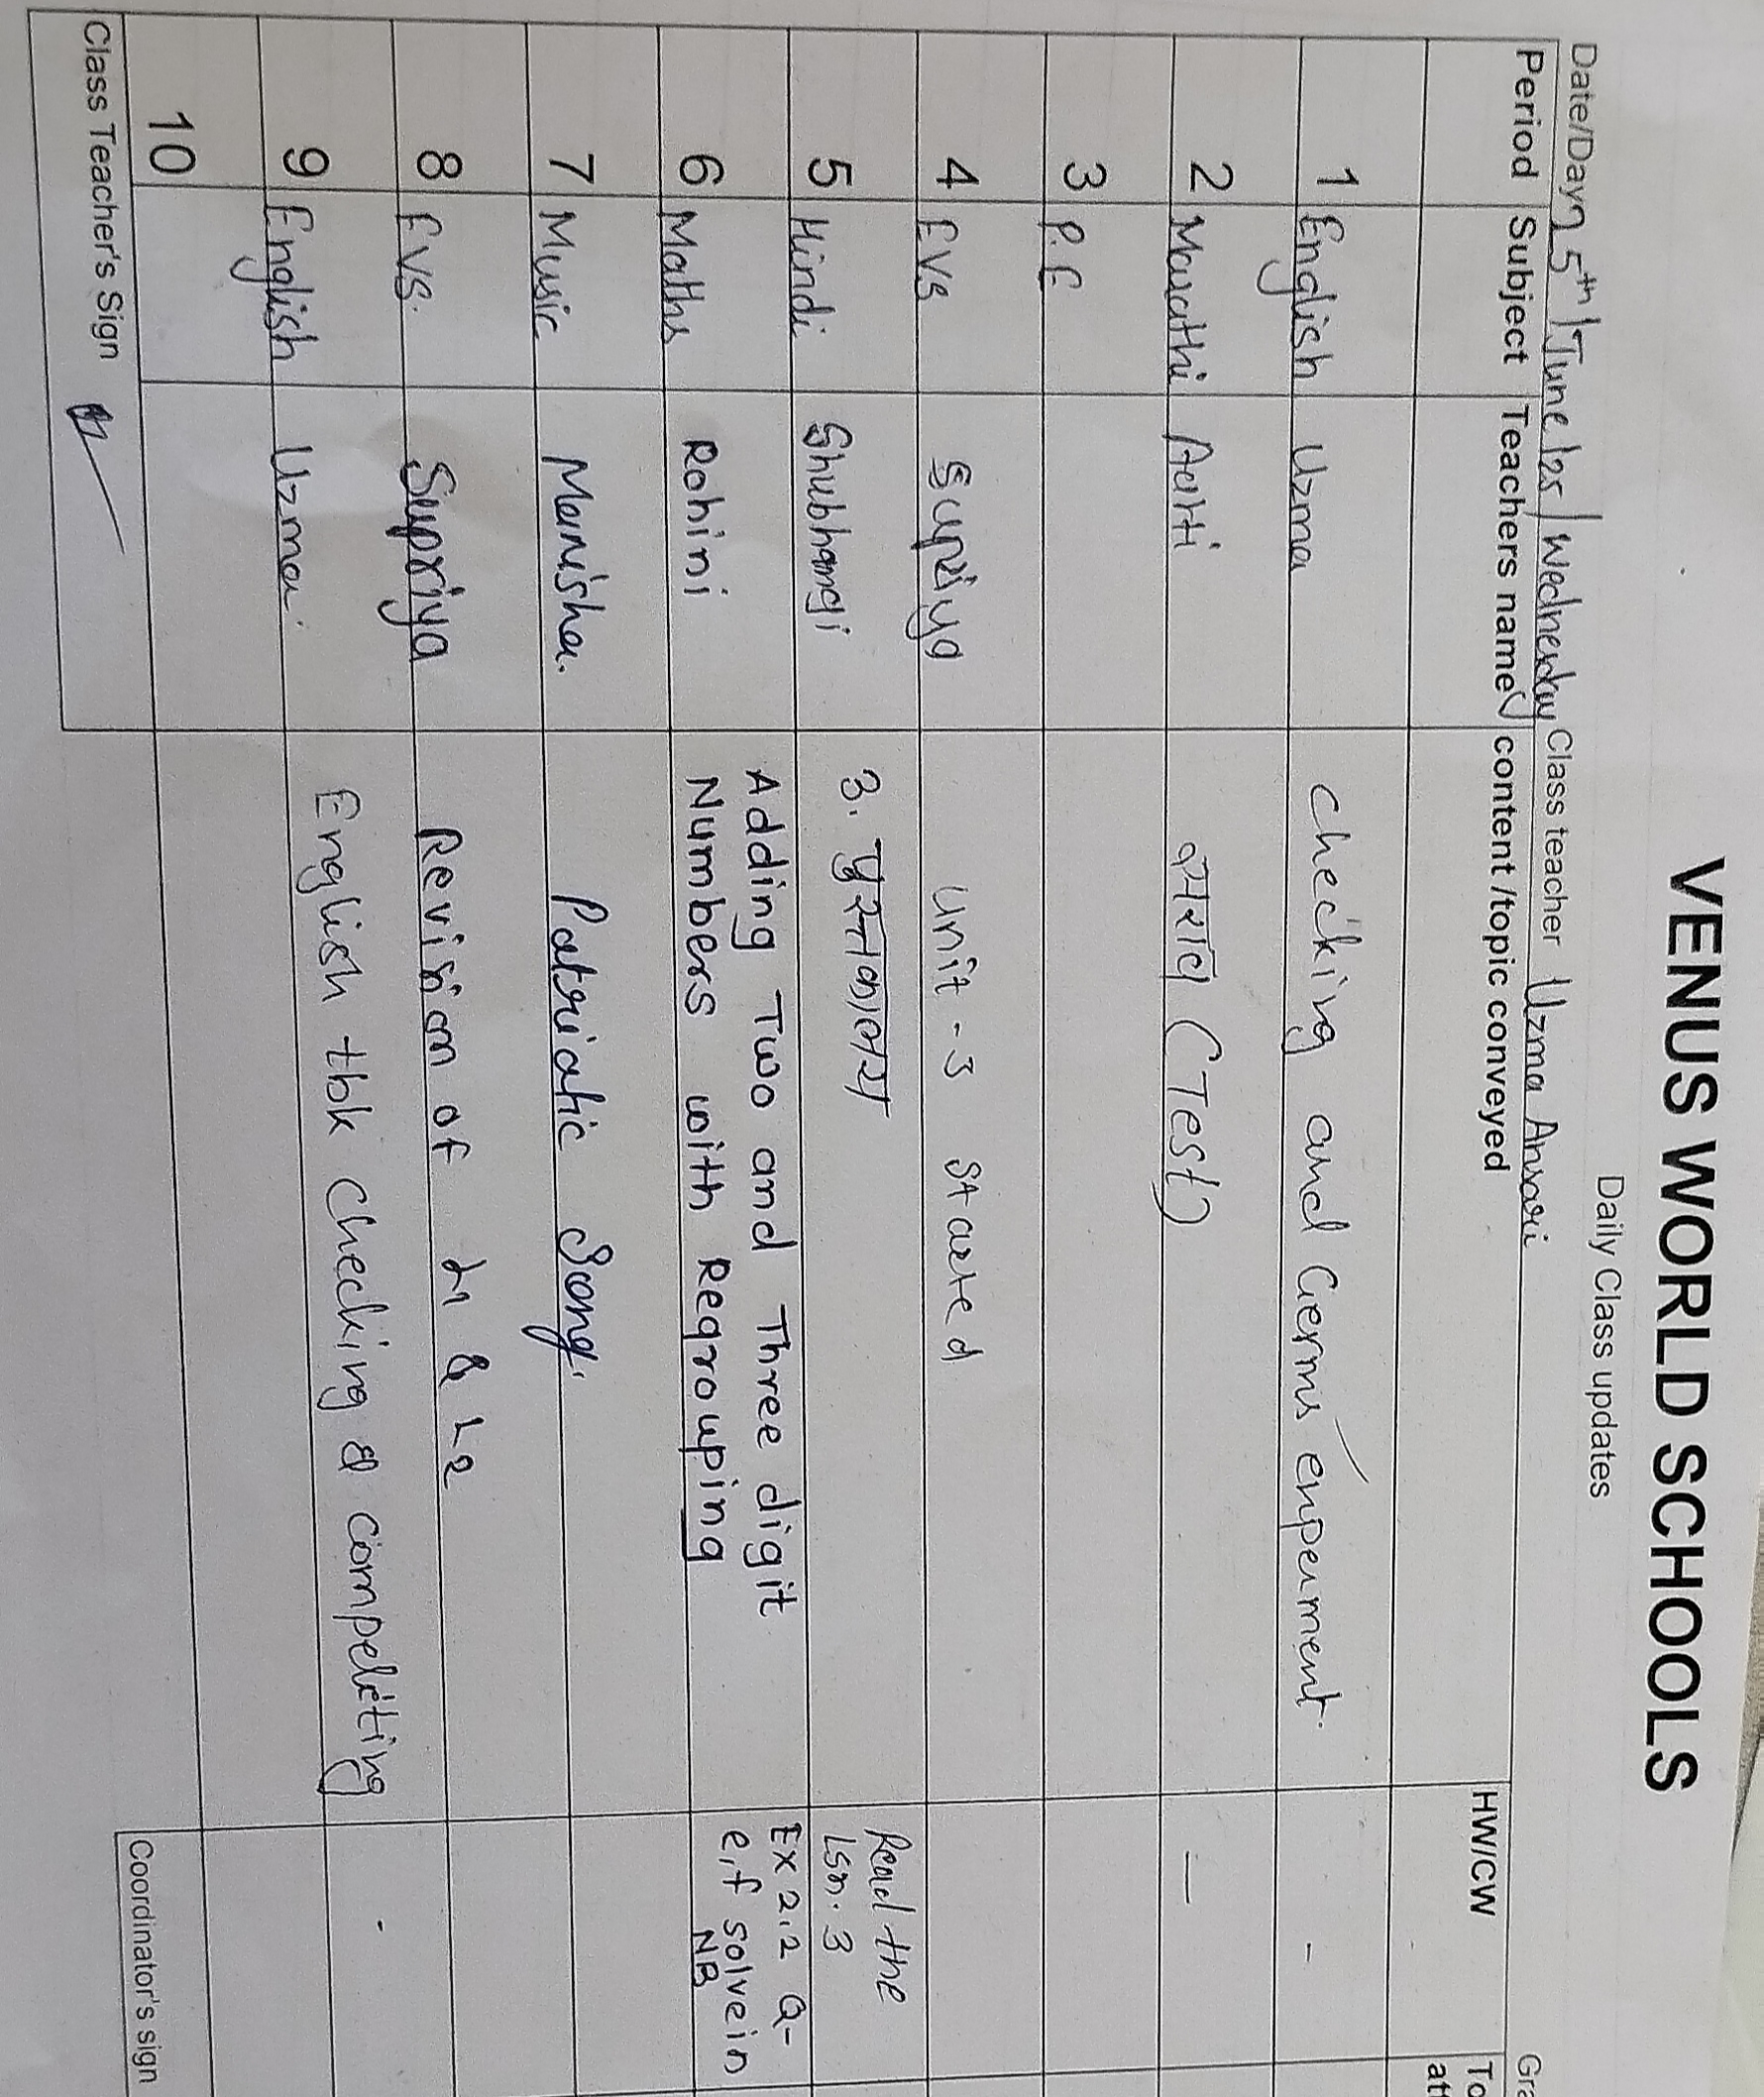 VENUS WORLD SCHOOLS
Daily Class updates
Date/Day 5th/June/25/Wednesday Class teacher Uzma Ansari Gra
Period Subject Teachers name content/topic conveyed HW/CW To
at
1 English Uzma Checking and Germs enperment. -
2 Marathi Aarti वरात (Test) —
3 P.E
4 EVS Supriya Unit - 3 Started
5 Hindi Shubhangi 3. पुस्तकालय Read the
Lsn. 3
6 Maths Rohini Adding Two and Three digit Ex 2.2 Q-
Numbers with Regrouping e, f solve in
NB
7 Music Manisha. Patriatic Song.
8 EVS. Supriya Revision of L1 & L2
9 English Uzma. English tbk Checking & compeleting -
10
Class Teacher's Sign Coordinator's sign